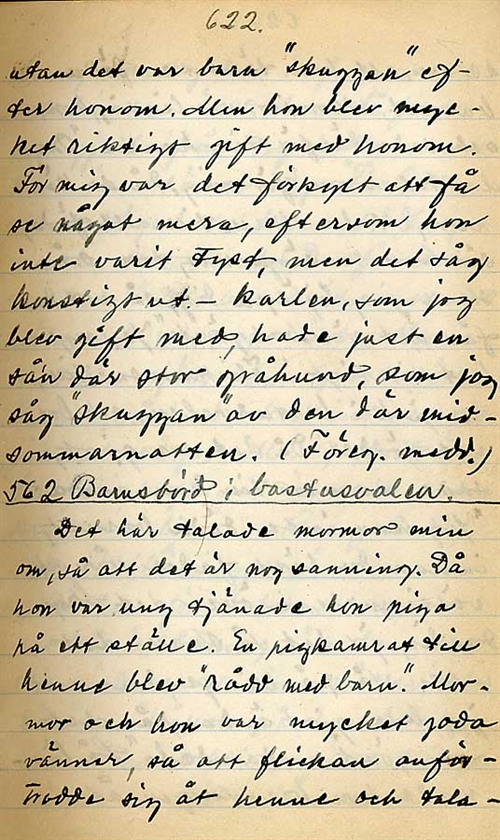 622.
utan det var bara "skuggan" ef-
ter honom. Men hon blev myc-
ket riktigt gift med honom.
För mig var det förkylt att få
se något mera, eftersom hon
inte varit tyst, men det såg
konstigt ut. – Karlen, som jag
blev gift med, hade just en
sån där stor gråhund, som jag
såg "skuggan" av den där mid-
sommarnatten. (Föreg. medd.)
562 Barnsbörd i bastusvalen.
Det här talade mormor min
om, så att det är nog sanning. Då
hon var ung tjänade hon piga
på ett ställe. En pigkamrat till
henne blev "rådd med barn". Mor-
mor och hon var mycket goda
vänner, så att flickan anför-
trodde sig åt henne och tala-